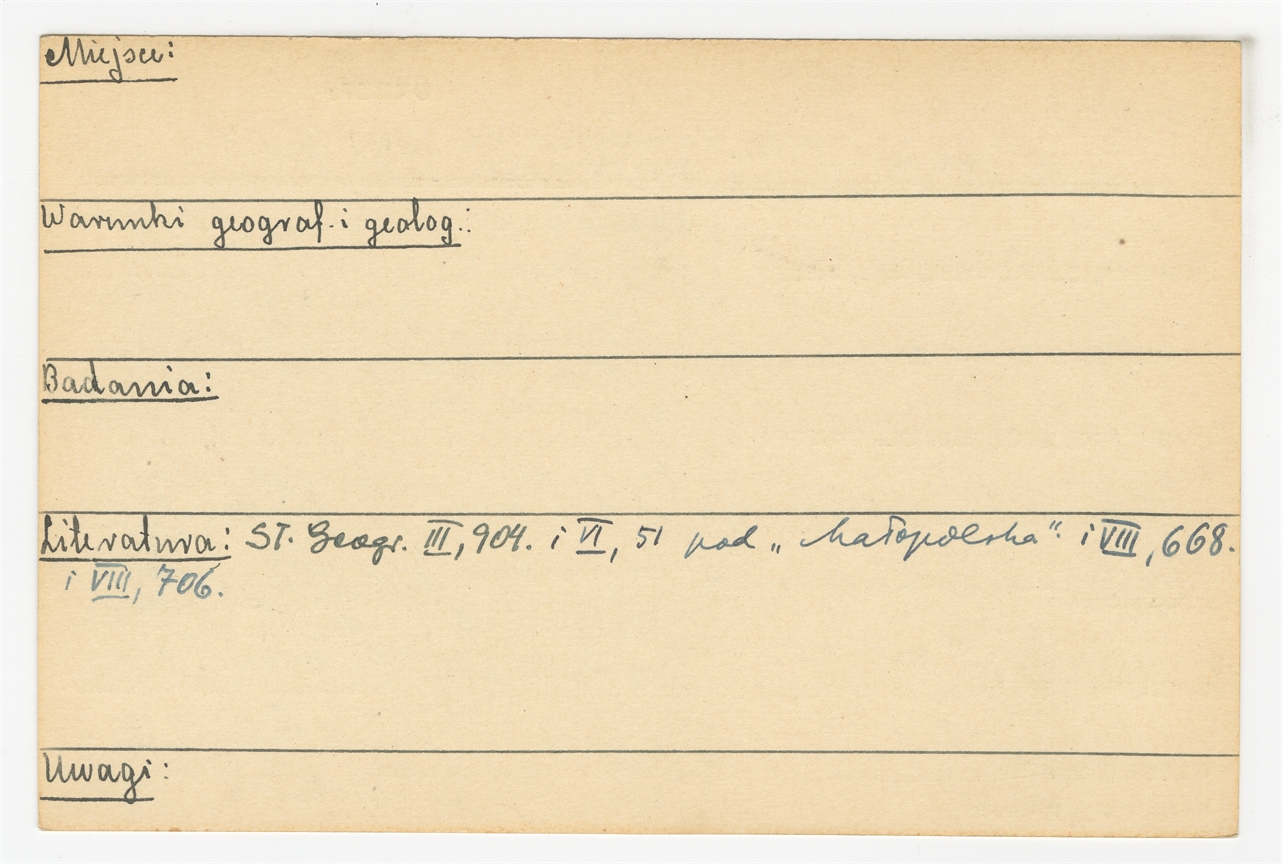 Miejsce:
Warunki geograf. i geolog.:
Badania:
Literatura: St. Geogr. III, 904. i VI, 51 pod „Małopolska“. i VIII, 668.
i VIII, 706.
Uwagi: